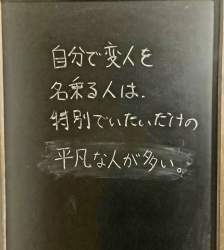 自分で変人を
名乗る人は、
特別でいたいだけの
平凡な人が多い。